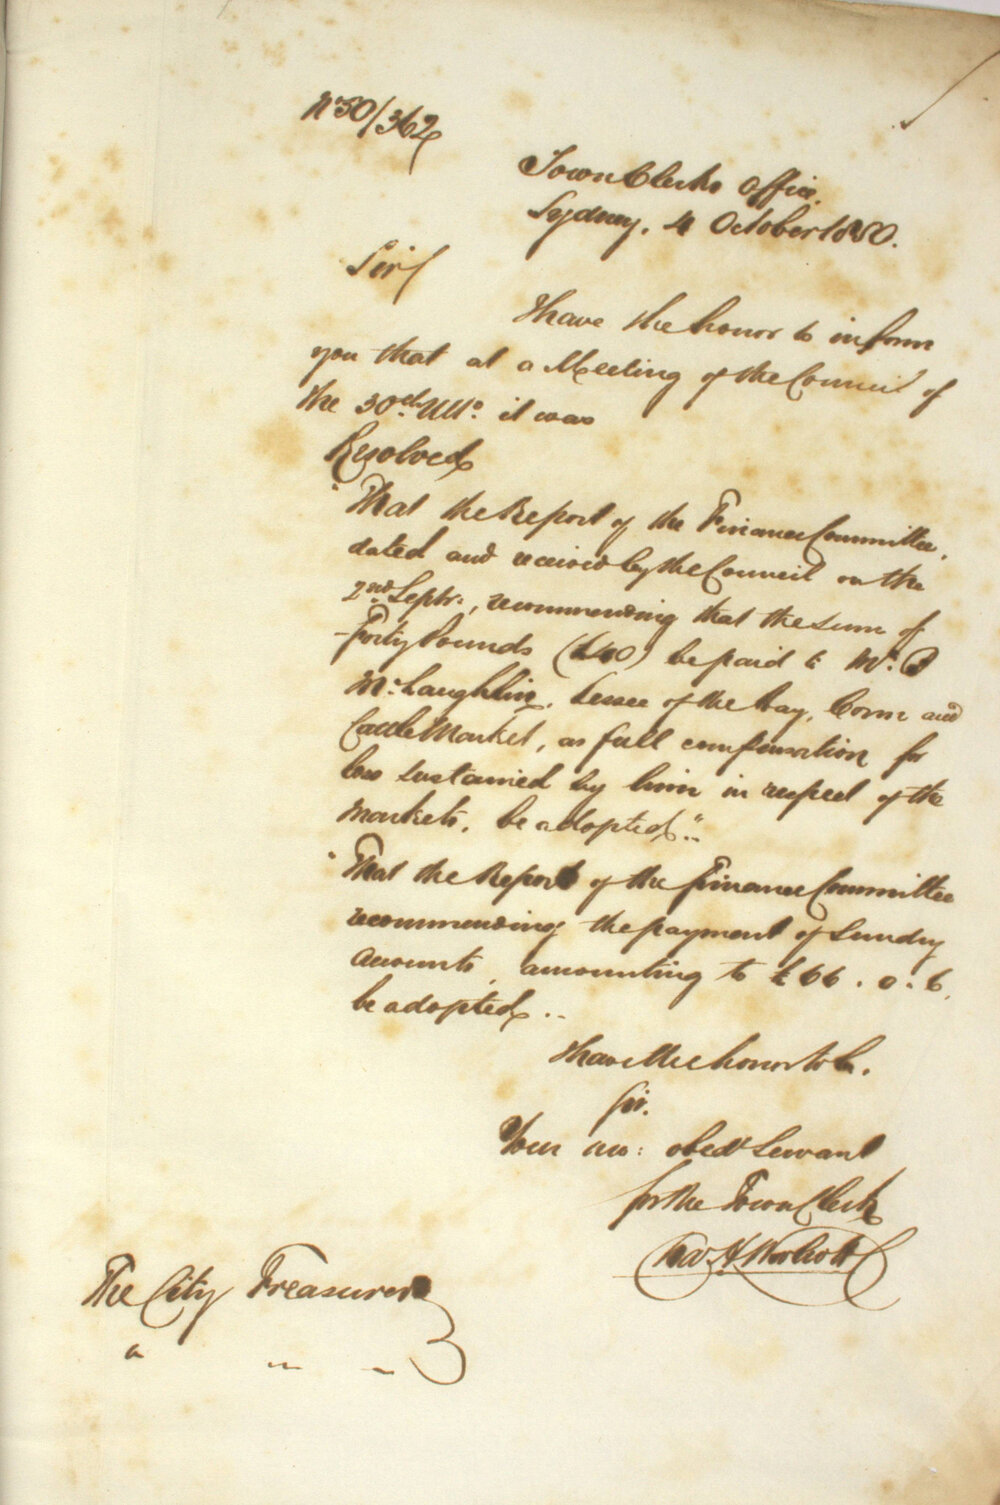 No 50/362
Town Clerks Office.
Sydney. 4 October 1850.
Sir/
I have the honor to inform
you that at a Meeting of the Council of
the 30th Ulto. it was
Resolved
"That the Report of the Finance Committee,
dated and received by the Council on the
2nd Septr., recommending that the sum of
Forty Pounds (£40) be paid to Mr.
McLaughlin, Lessee of the Hay, Corn and
Cattle Market, as full compensation for
loss sustained by him in respect of the
Markets, be adopted"..
"That the Report of the Finance Committee
recommending the payment of Sundry
amounts, amounting to £66.0.6.
be adopted..
I have the honor to be.
Sir.
Your mo: obedt Servant
for the Town Clerk
The City Treasurer
" " "